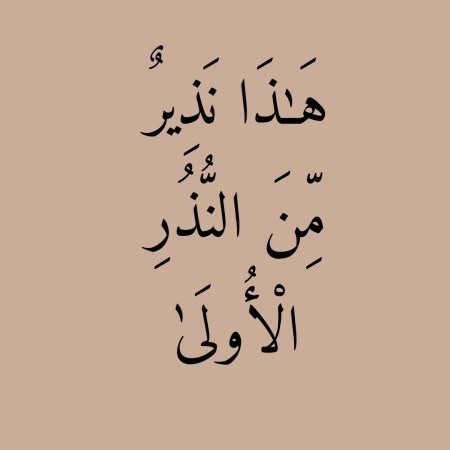 هَـٰذَا نَذِيرٌ
مِّنَ النُّذُرِ
الْأُولَىٰ